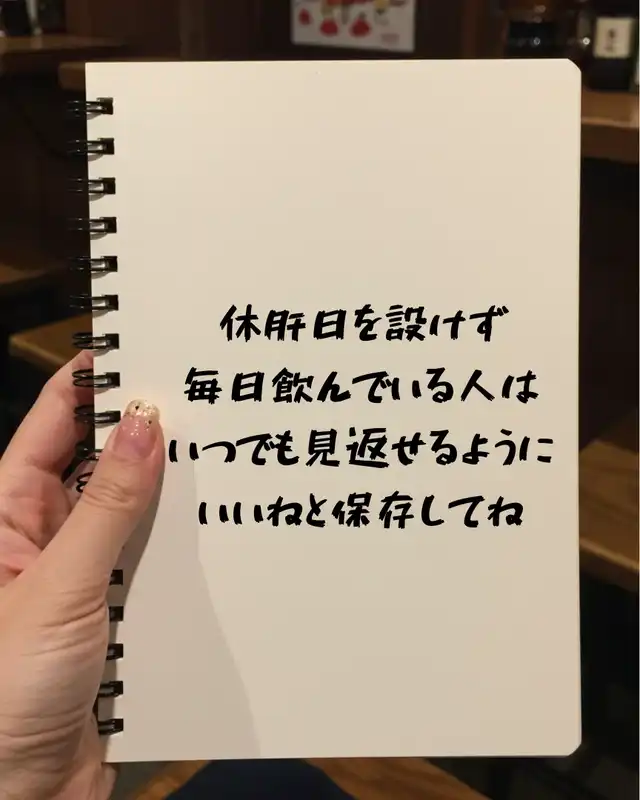 休肝日を設けず
毎日飲んでいる人は
いつでも見返せるように
いいねと保存してね